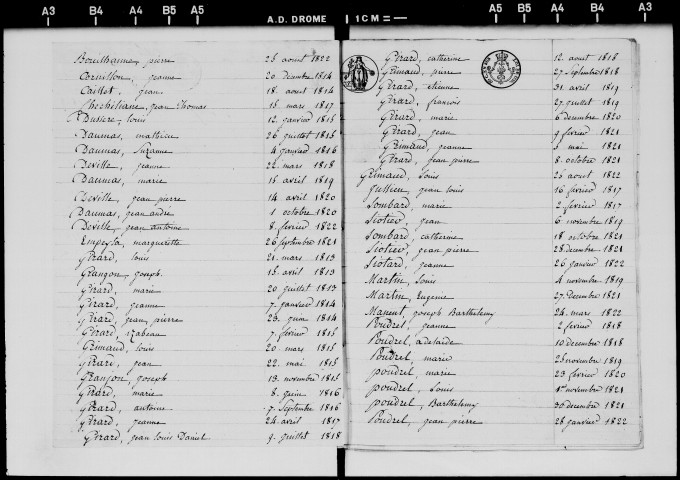 A3 B4 A4 B5 A5 A.D. DROME 1 CM A5 B5 A4 B4 A3
Bouilhanne, pierre 25 aout 1822
Cornillon, jeanne 20 decembre 1814
Caillet, jean 18 aout 1814
jean Thomas 15 mars 1817
Bussere, louis 12 janvier 1815
Daumas, mathieu 26 juillet 1815
Daumas, Suzanne 4 janvier 1816
Deville, jeanne 22 mars 1818
Daumas, marie 15 avril 1819
Deville, jean pierre 14 avril 1820
Daumas, jean andre 1 octobre 1820
Deville, jean antoine 8 fevrier 1822
Empeyta, marguerette 26 septembre 1821
Girard, louis 21 mars 1813
Grangon, joseph 15 avril 1813
Girard, marie 20 juillet 1813
Girard, jeanne 7 janvier 1814
Girard, jean, pierre 23 juin 1814
Girard, izabeau 7 fevrier 1815
Grimaud, louis 20 mars 1815
Girard, jean 22 mai 1815
Grangon, joseph 13 novembre 1815
Girard, marie 8 juin 1816
Girard, antoine 7 Septembre 1816
Girard, jeanne 24 avril 1817
Girard, jean louis Daniel 9 juillet 1818
Girard, catherine 12 aout 1818
Grimaud, pierre 27 Septembre 1818
Girard, etienne 31 avril 1819
Girard, francois 27 juillet 1819
Girard, marie 6 decembre 1820
Girard, jean 9 fevrier 1821
Grimaud, jeanne 1 mai 1821
Girard, jean pierre 8 octobre 1821
Grimaud, Louis 25 aout 1822
Jullien, jean louis 16 fevrier 1817
Lombard, marie 2 fevrier 1817
Liotier, jean 6 novembre 1819
Lombard, catherine 18 octobre 1821
Liotier, jean pierre 28 decembre 1821
Liotard, jeanne 26 janvier 1822
Martin, Louis 4 novembre 1819
Martin, Eugenie 27 Decembre 1821
Manent, joseph Barthelemy 26 mars 1822
Poudrel, jeanne 2 fevrier 1818
Poudrel, adelaide 10 decembre 1818
Poudrel, marie 25 novembre 1819
poudrel, marie 23 fevrier 1820
poudrel, Louis 1er novembre 1821
poudrel, Barthelemy 30 decembre 1821
Poudrel, jean pierre 28 janvier 1822